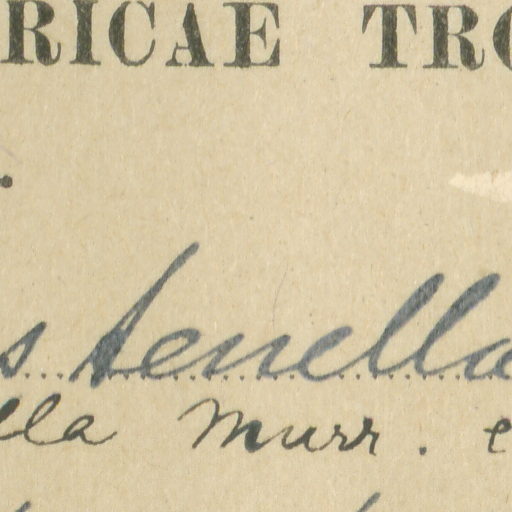 RICAE TRO
s tenella
lla Murr. e